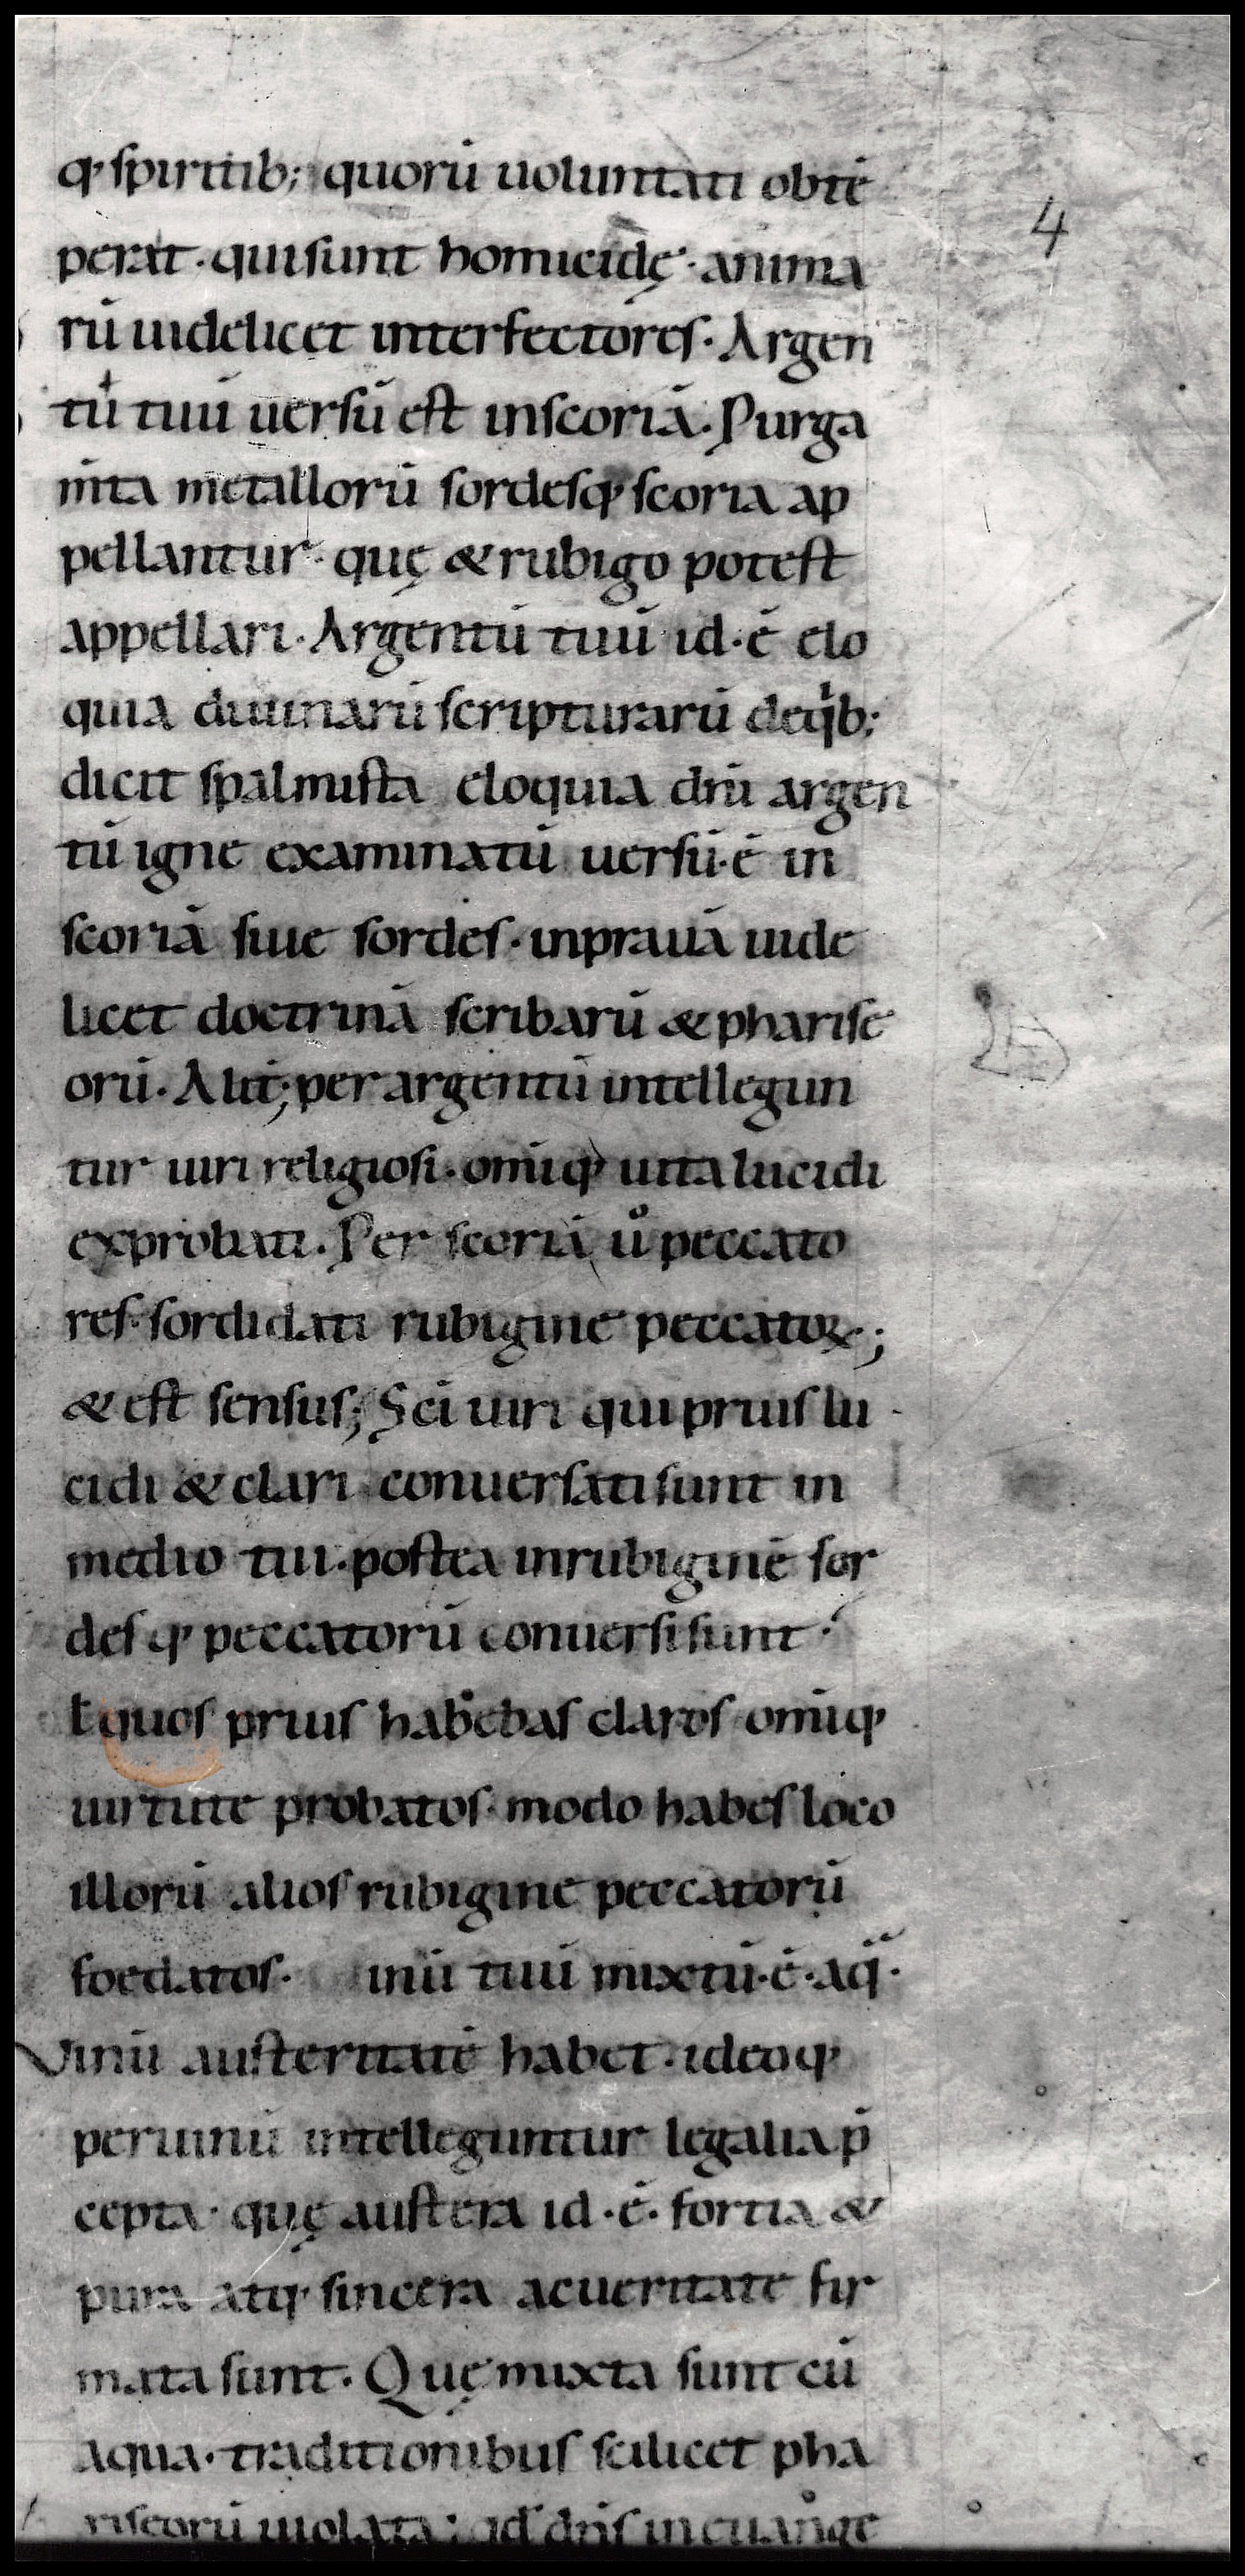 qꝫ spiritib; quorū uoluntati obtē
perat · qui sunt homicidę · anima
rū uidelicet interfectores · Argen
tū tuū uersū est inscoriā · Purga
m̄ta metallorū sordesqꝫ scoria ap
pellantur · quę & rubigo potest
appellari · Argentū tuū id · ē elo
quia diuinarū scripturarū deqⁱb;
dicit spalmista eloquia dn̄i argen
tū igne examinatū uersū · ē in
scoriā siue sordes · inprauā uide
licet doctrinā scribarū & pharise
orū · Alit; per argentū intellegun
tur uiri religiosi · om̄iqꝫ uita lucidi
exprobati · Per scoriā uͦ peccato
res · sordidati rubigine peccatoꝝ;
& est sensus; Sc̄i uiri qui prius lu
cidi & clari conuersati sunt in
medio tui · postea inrubiginē sor
des qꝫ peccatorū conuersi sunt ·
t quos prius habebas claros om̄iqꝫ
uirtute probatos · modo habes loco
illorū alios rubigine peccatorū
foedatos · inū tuū mixtū · ē · aq̄ ·
Vinū austeritatē habet · ideoqꝫ
per uinū intelleguntur legalia p̄
cepta · quę austera id · ē · fortia &
pura atqꝫ sincera acueritate fir
mata sunt · Quę mixta sunt cū
aqua · traditionibus scilicet pha
riseorū uiolata; ad dn̄s in euange
4